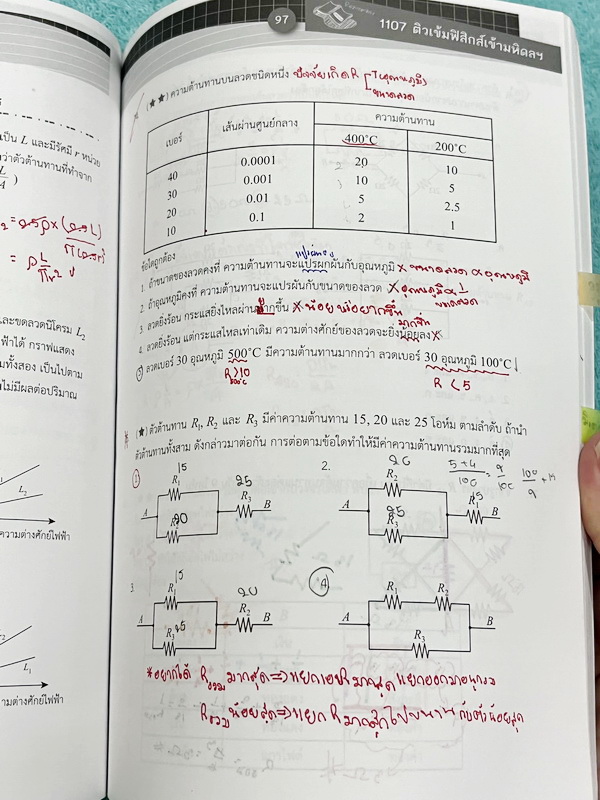 97
1107 ติวเข้มฟิสิกส์เข้ามหิดลฯ
(★★) ความต้านทานบนลวดชนิดหนึ่ง ปัจจัยเกิด R
T อุณหภูมิ
ขนาดลวด
เบอร์ เส้นผ่านศูนย์กลาง ความต้านทาน
400°C 200°C
40 0.0001 20 10
30 0.001 10 5
20 0.01 5 2.5
10 0.1 2 1
ข้อใดถูกต้อง
1. ถ้าขนาดของลวดคงที่ ความต้านทานจะแปรผกผันกับอุณหภูมิ X
2. ถ้าอุณหภูมิคงที่ ความต้านทานจะแปรผันกับขนาดของลวด X
3. ลวดยิ่งร้อน กระแสยิ่งไหลผ่านมากขึ้น X
4. ลวดยิ่งร้อน แต่กระแสไหลเท่าเดิม ความต่างศักย์ของลวดจะยิ่งน้อยลง X
5. ลวดเบอร์ 30 อุณหภูมิ 500°C มีความต้านทานมากกว่า ลวดเบอร์ 30 อุณหภูมิ 100°C
R > 10
500°C
R < 5
(★) ตัวต้านทาน R₁, R₂ และ R₃ มีค่าความต้านทาน 15, 20 และ 25 โอห์ม ตามลำดับ ถ้านำ
ตัวต้านทานทั้งสาม ดังกล่าวมาต่อกัน การต่อตามข้อใดทำให้มีค่าความต้านทานรวมมากที่สุด
1
15
R₁
A
20
R₂
25
R₃
B
2.
20
R₂
A
25
R₃
15
R₁
B
5+4
100
= 9
100
100
9
3.
15
R₁
A
25
R₃
20
R₂
B
4
R₁ R₂
A B
R₃
*อยากได้ Rรวม มากสุด => แยกเอา R มากสุด แยกออกมาอนุกรม
Rรวม น้อยสุด => แยก R มากสุดไปขนานกับตัวน้อยสุด
เป็น L และมีรัศมี r หน่วย
ว่าตัวต้านทานที่ทำจาก
และขดลวดนิโครม L₂
ฟ้าได้ กราฟแสดง
มทั้งสอง เป็นไปตาม
ไม่มีผลต่อปริมาณ
L₂
ความต่างศักย์ไฟฟ้า
L₁
ามต่างศักย์ไฟฟ้า